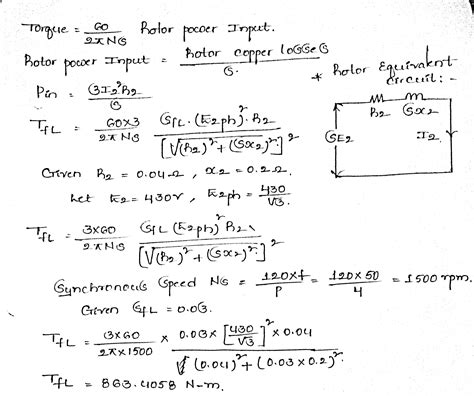 Torque = 60 / 2πNs Rotor power Input.
Rotor power Input = Rotor copper losses / s.
* Rotor Equivalent circuit :-
Pin = (3I₂²R₂) / s
R₂ sx₂
SE₂ I₂
TfL = 60×3 / 2πNs SfL. (E₂ph)². R₂ / [√(R₂)² + (Sx₂)²]²
Given R₂ = 0.04Ω, x₂ = 0.2Ω.
Let E₂ = 430V, E₂ph = 430 / √3.
TfL = 3×60 / 2πNs SfL (E₂ph)² R₂ / [√(R₂)² + (Sx₂)²]²
Synchronous Speed Ns = 120×f / P = 120×50 / 4 = 1500 rpm.
Given SfL = 0.03.
TfL = 3×60 / 2π×1500 × 0.03× [430 / √3]² × 0.04 / √(0.04)² + (0.03×0.2)².
TfL = 863.4058 N-m.